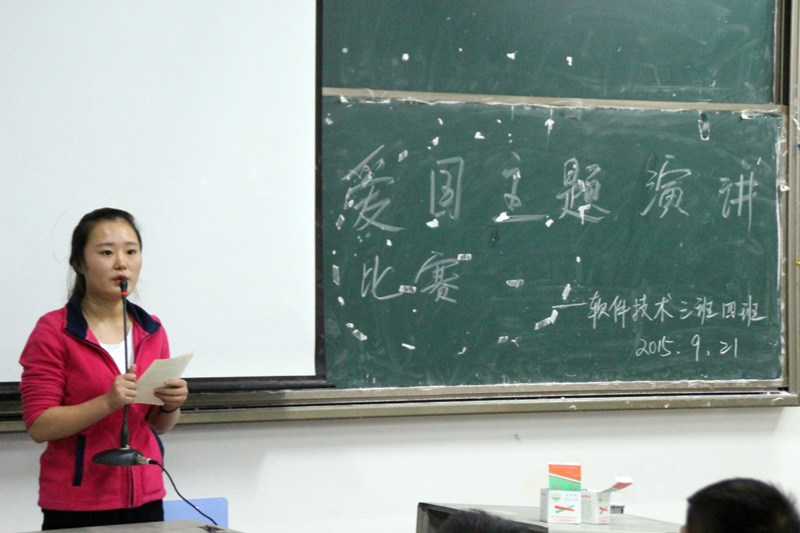 爱国主题演讲
比赛
—软件技术三班四班
2015.9.21